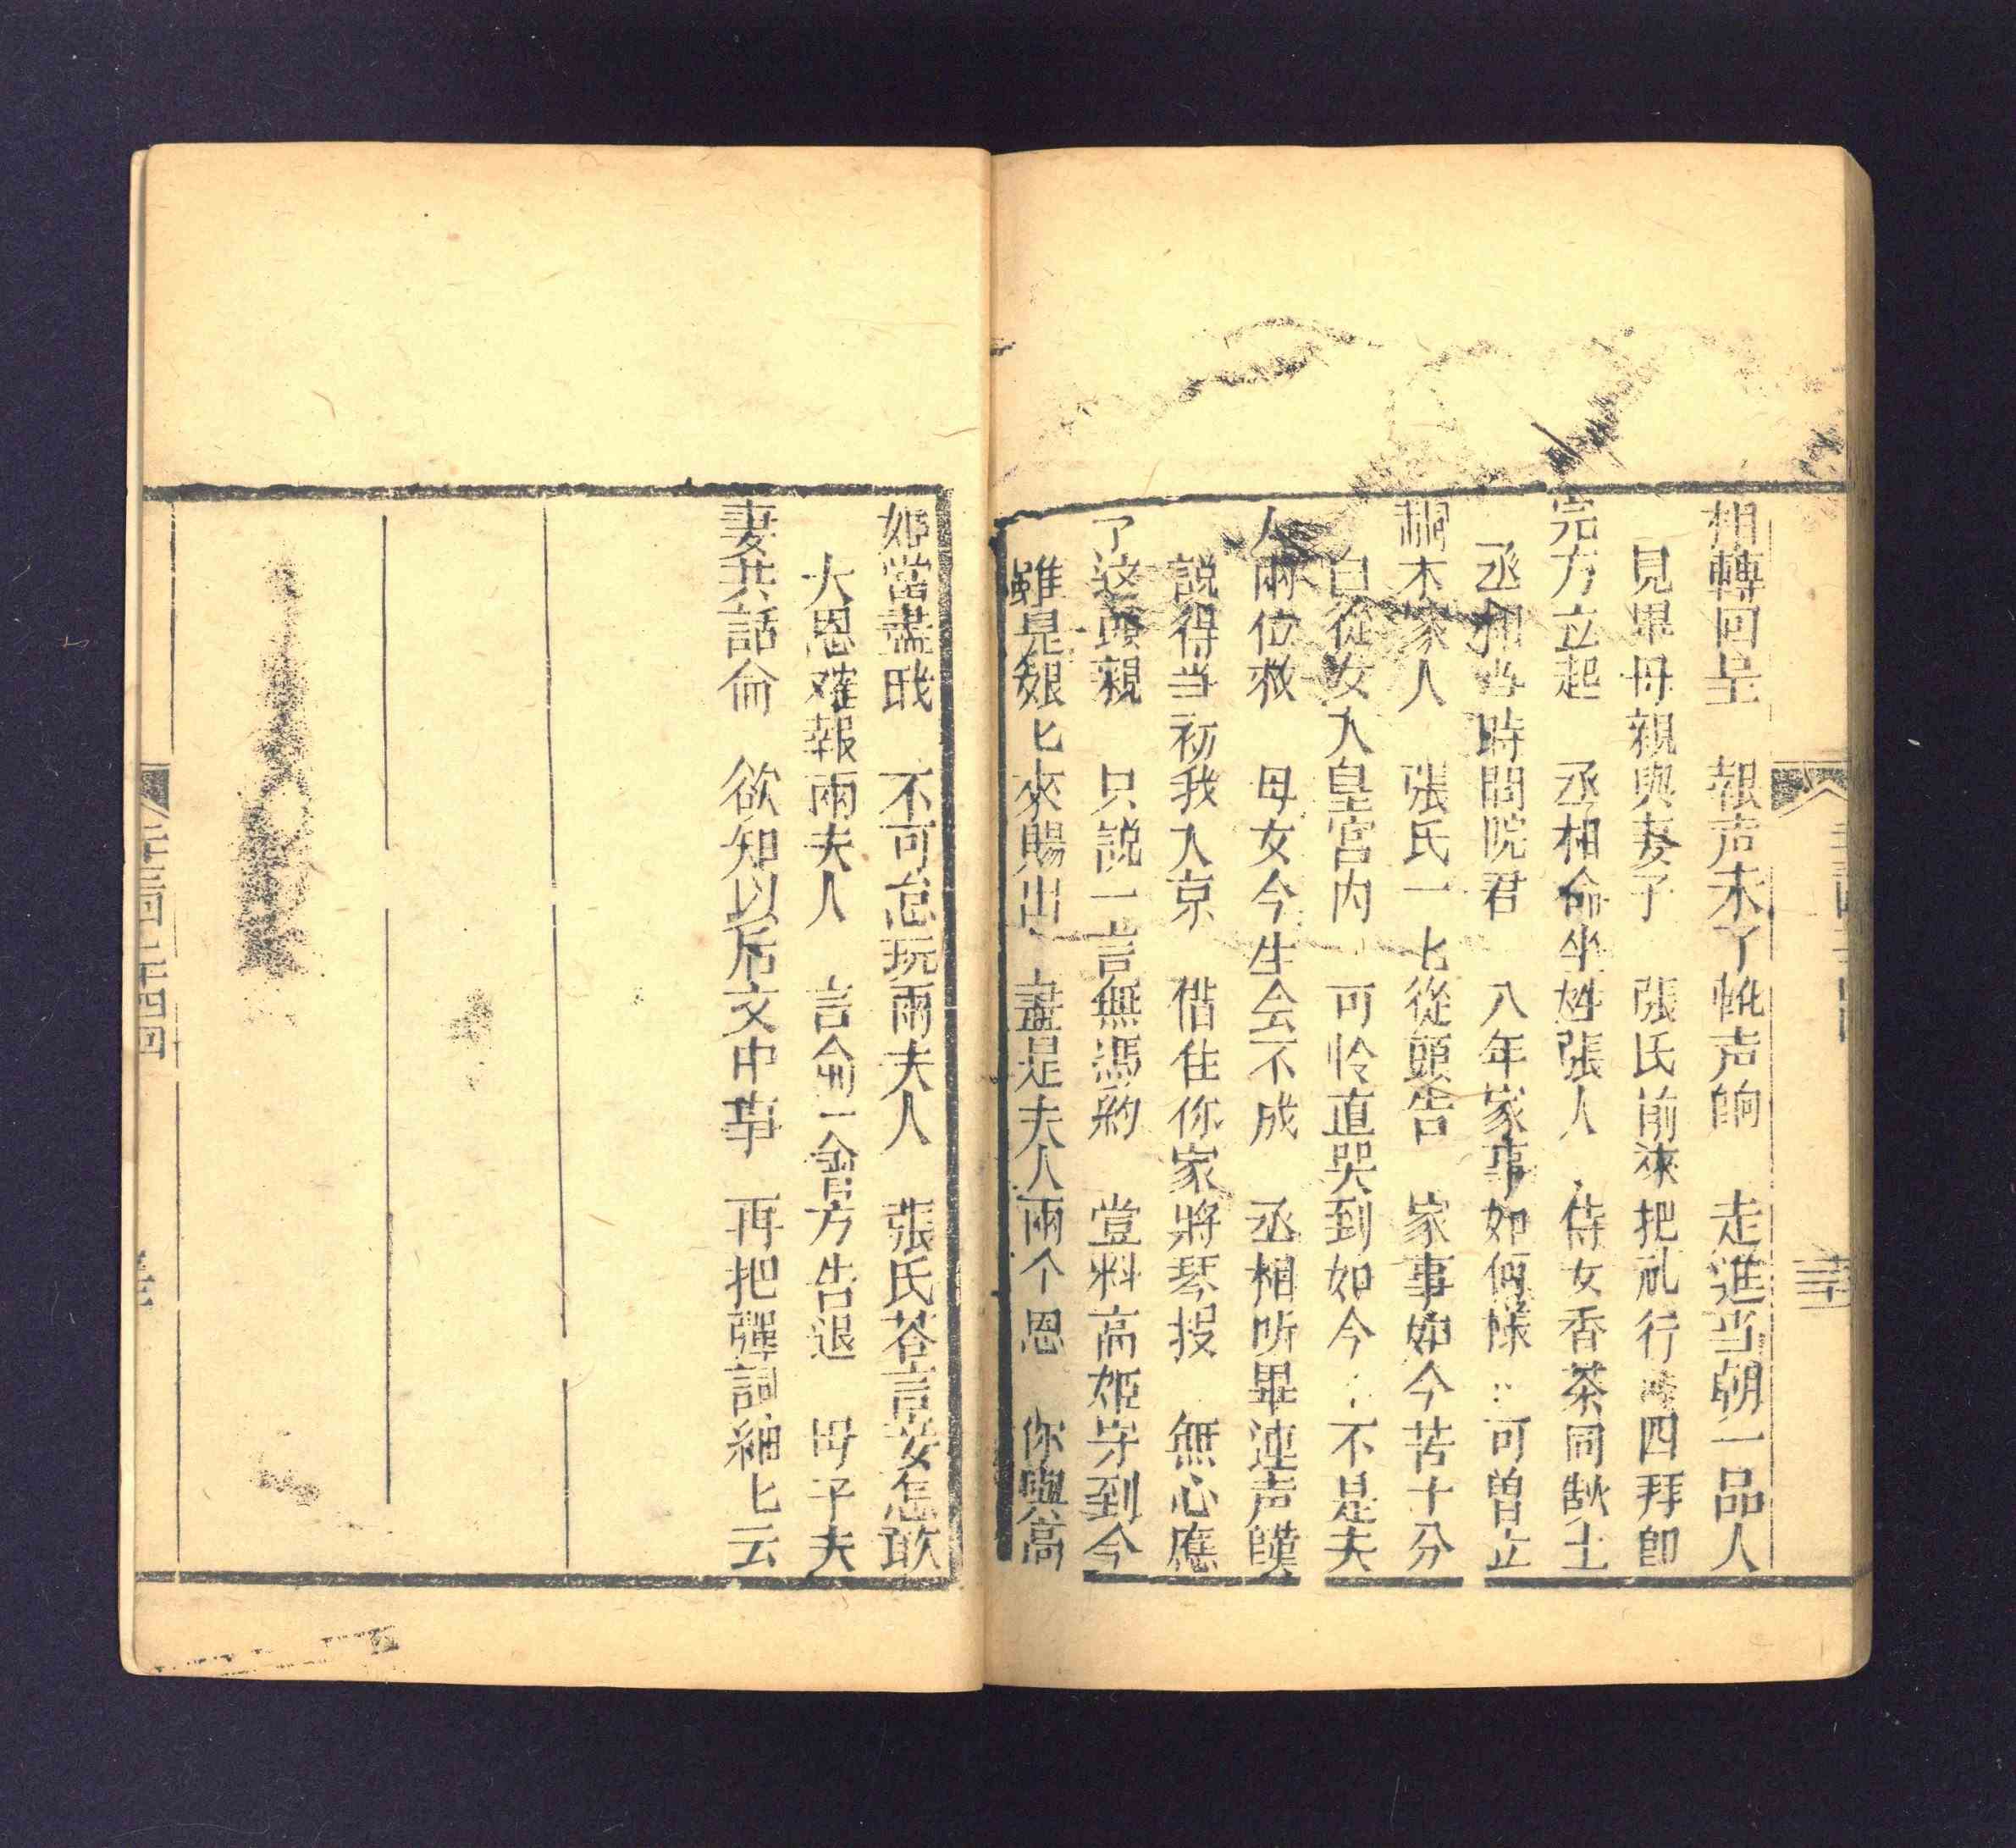 相轉回呈　報声未了靴声响　走進当朝一品人
見畢母親與妻子　張氏前來把礼行　四拜即
完方立起　丞相命坐姓張人　侍女香茶同献上
丞相当時問院君　八年家事如何樣　可曾立
嗣木家人　張氏一匕從頭告　家事如今苦十分
自從女入皇宮内　可怜直哭到如今　不是夫
人兩位救　母女今生会不成　丞相听畢連声嘆
説得当初我入京　借住你家將琴授　無心應
了这頭親　只説一言無憑約　豈料高姬守到今
雖是娘匕來賜出　盡是夫人兩个恩　你與高
姬當盡戝　不可怠玩兩夫人　張氏荅言妾怎敢
大恩难報兩夫人　言侖一會方告退　毋子夫
妻共話侖　欲知以后文中事　再把彈詞細匕云
三回二十四回